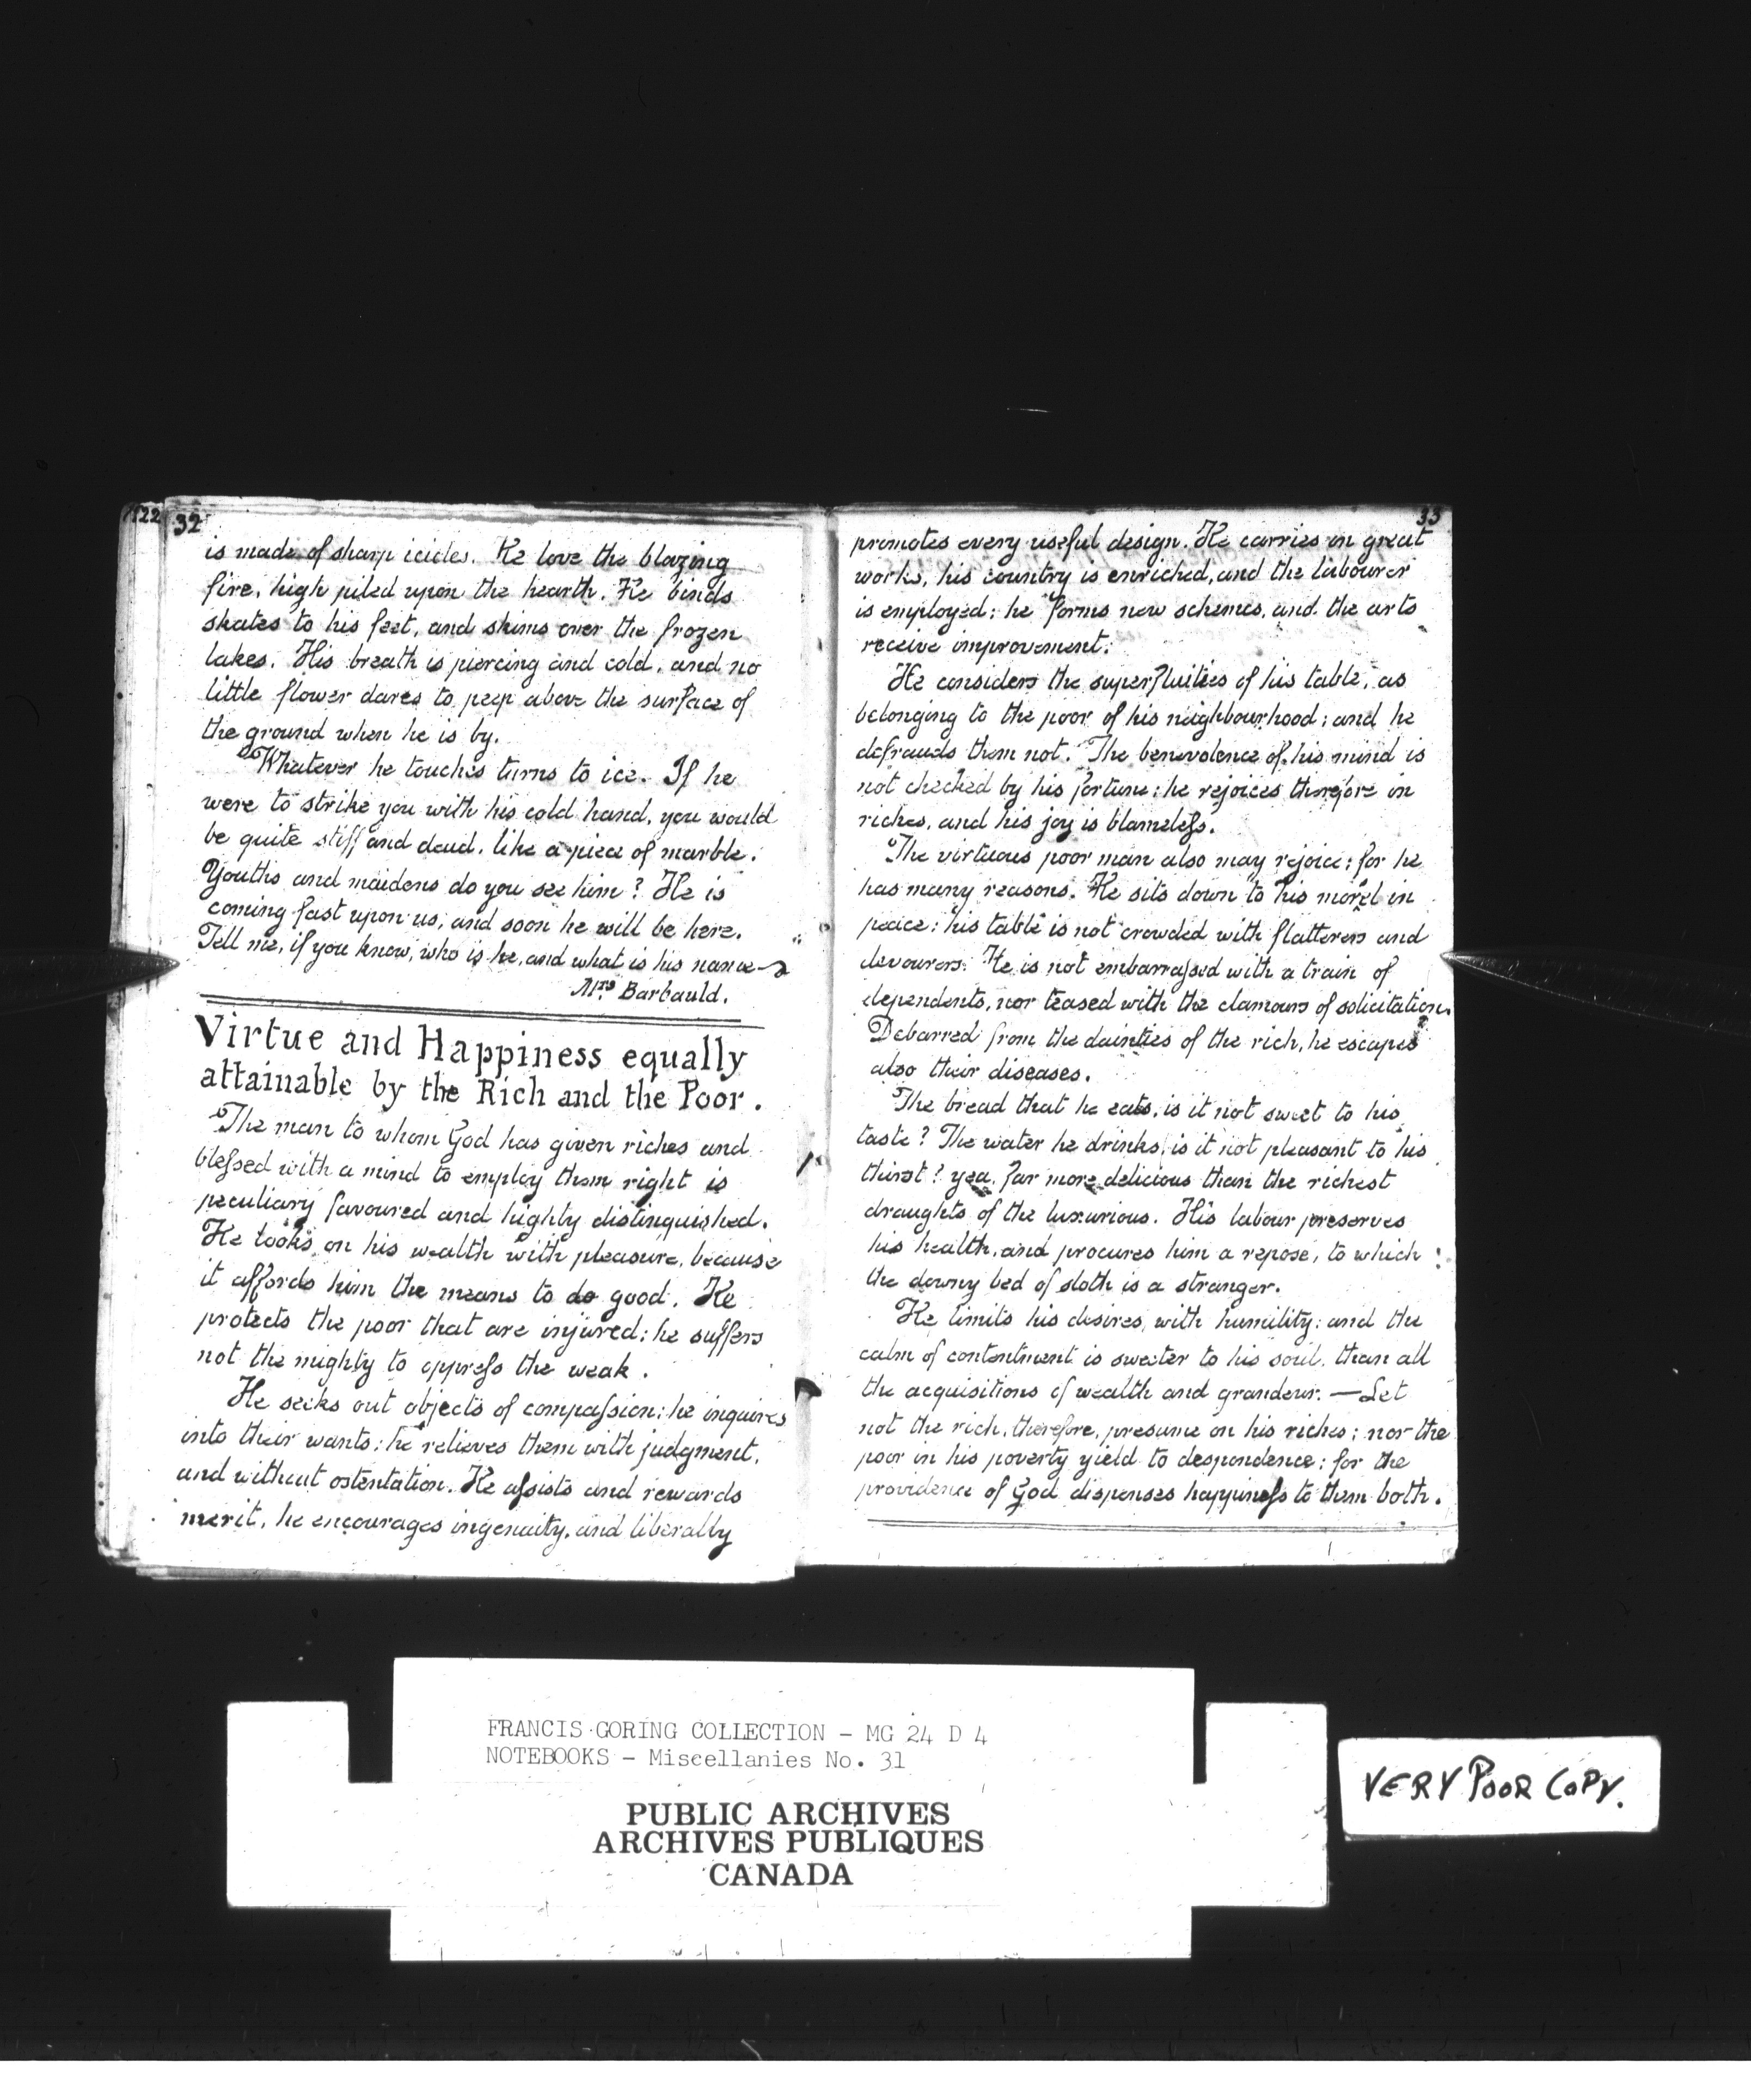 22
32
is made of sharp icicles. He love the blazing
fire, high piled upon the hearth. He binds
skates to his feet, and skims over the frozen
lakes. His breath is piercing and cold, and no
little flower dares to peep above the surface of
the ground when he is by.
Whatever he touches turns to ice. If he
were to strike you with his cold hand, you would
be quite stiff and dead, like a piece of marble.
Youths and maidens do you see him? He is
coming fast upon us, and soon he will be here.
Tell me, if you know, who is he, and what is his name
Mrs Barbauld.
Virtue and Happiness equally
attainable by the Rich and the Poor.
The man to whom God has given riches and
blessed with a mind to employ them right is
peculiary favoured and highly distinguished.
He looks on his wealth with pleasure, because
it affords him the means to do good. He
protects the poor that are injured; he suffers
not the mighty to oppress the weak.
He seeks out objects of compassion; he inquires
into their wants; he relieves them with judgment,
and without ostentation. He assists and rewards
merit, he encourages ingenuity, and liberally
33
promotes every useful design. He carries on great
works, his country is enriched, and the labourer
is employed; he forms new schemes, and the arts
receive improvement.
He considers the superfluities of his table, as
belonging to the poor of his neighbourhood; and he
defrauds them not. The benevolence of his mind is
not checked by his fortune; he rejoices therefore in
riches, and his joy is blameless.
The virtuous poor man also may rejoice; for he
has many reasons. He sits down to his morsel in
peace; his table is not crowded with flatterers and
devourers. He is not embarrassed with a train of
dependents, nor teased with the clamours of solicitation.
Debarred from the dainties of the rich, he escapes
also their diseases.
The bread that he eats, is it not sweet to his
taste? The water he drinks, is it not pleasant to his
thirst? yea, far more delicious than the richest
draughts of the luxurious. His labour preserves
his health, and procures him a repose, to which
the downy bed of sloth is a stranger.
He limits his desires, with humility; and the
calm of contentment is sweeter to his soul, than all
the acquisitions of wealth and grandeur. — Let
not the rich, therefore, presume on his riches; nor the
poor in his poverty yield to despondence; for the
providence of God dispenses happiness to them both.
FRANCIS GORING COLLECTION - MG 24 D 4
NOTEBOOKS - Miscellanies No. 31
PUBLIC ARCHIVES
ARCHIVES PUBLIQUES
CANADA
VERY POOR COPY.